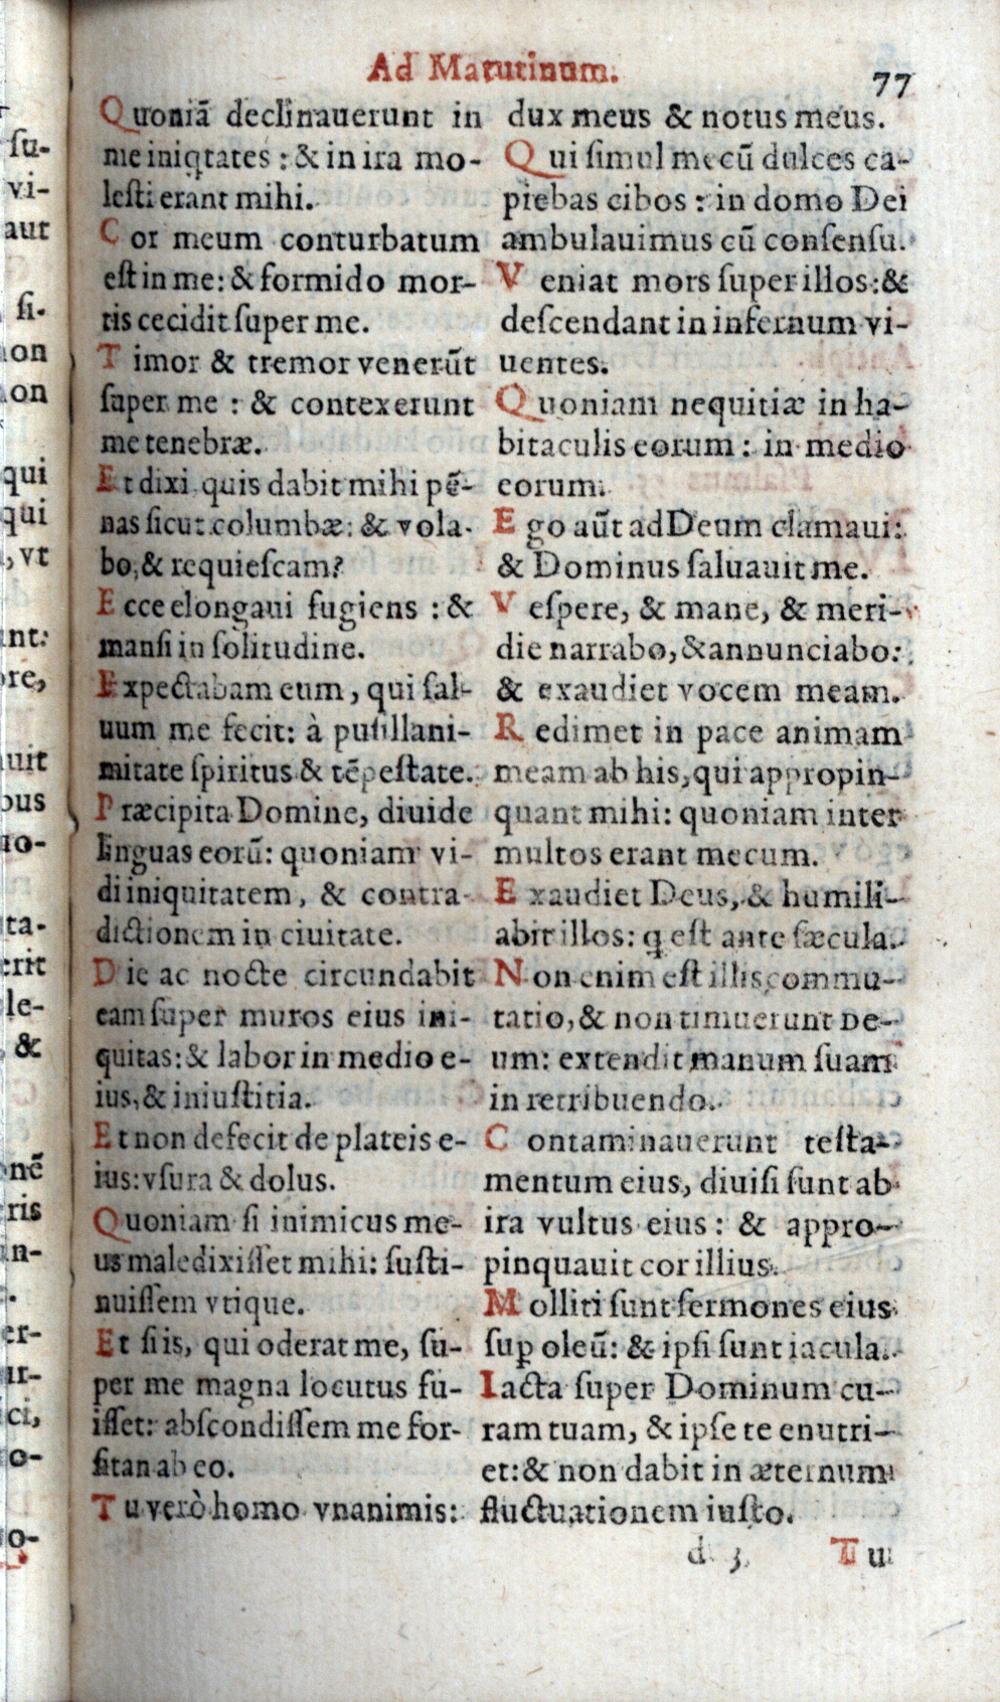 Ad Matutinum.
77
Quoniã declinauerunt in
me iniqtates : & in ira mo-
lesti erant mihi.
Cor meum conturbatum
est in me: & formido mor-
tis cecidit super me.
Timor & tremor venerũt
super me : & contexerunt
me tenebræ.
Et dixi quis dabit mihi pẽ-
nas sicut columbæ: & vola-
bo, & requiescam?
Ecce elongaui fugiens : &
mansi in solitudine.
Expectabam eum, qui sal-
uum me fecit: à pusillani-
mitate spiritus & tẽpestate.
Præcipita Domine, diuide
linguas eorũ: quoniam vi-
di iniquitatem, & contra-
dictionem in ciuitate.
Die ac nocte circundabit
eam super muros eius ini-
quitas: & labor in medio e-
ius, & iniustitia.
Et non defecit de plateis e-
ius: vsura & dolus.
Quoniam si inimicus me-
us maledixisset mihi: susti-
nuissem vtique.
Et si is, qui oderat me, su-
per me magna locutus fu-
isset: abscondissem me for-
sitan ab eo.
Tu verò homo vnanimis:
dux meus & notus meus.
Qui simul mecũ dulces ca-
piebas cibos : in domo Dei
ambulauimus cũ consensu.
Veniat mors super illos: &
descendant in infernum vi-
uentes.
Quoniam nequitiæ in ha-
bitaculis eorum : in medio
eorum.
Ego aũt ad Deum clamaui:
& Dominus saluauit me.
Vespere, & mane, & meri-
die narrabo, & annunciabo:
& exaudiet vocem meam.
Redimet in pace animam
meam ab his, qui appropin-
quant mihi: quoniam inter
multos erant mecum.
Exaudiet Deus, & humili-
abit illos: ꝗ est ante sæcula.
Non enim est illis commu-
tatio, & non timuerunt De-
um: extendit manum suam
in retribuendo.
Contaminauerunt testa-
mentum eius, diuisi sunt ab
ira vultus eius : & appro-
pinquauit cor illius.
Molliti sunt sermones eius
suꝑ oleũ: & ipsi sunt iacula.
Iacta super Dominum cu-
ram tuam, & ipse te enutri-
et: & non dabit in æternum
fluctuationem iusto.
d 3
Tu